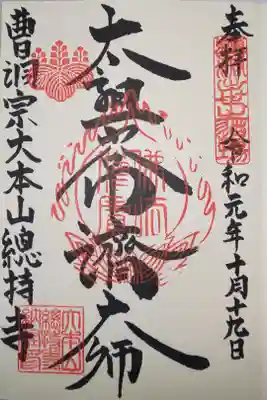 奉拝
令和元年十月十九日
太祖常濟大師
曹洞宗大本山總持寺